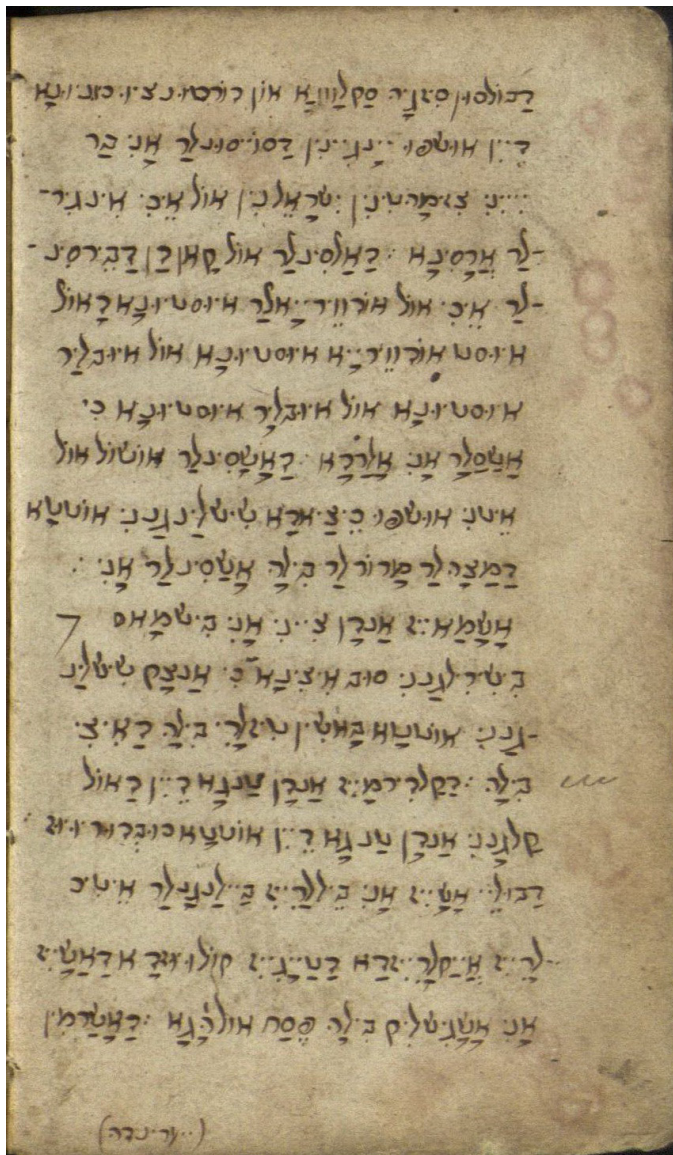 דַבוֹלסוּן סִיזגָיִ סַקלַווגַא אוֹן דוֹרטוּנצִיוּ כוּנִיוּנָא
דֵיִין אוּשפּוּ יִינגִינִין דַסוֹייסוּנלַר אַנִי בַר
יִינִי צִימָהטִינִין יִשׂרָאֵלנִין אוֹל אֵיכִי אִינגִיר־
־לַר אֲרָסִינָא : דַאַלסִינלַר אוֹל קָאן דַן דַבֵירסִינ־
־לַר אֵיכִי אוֹל אוֹרווֵירִיַיאלַר אִיוּסטִיוּנָא דָאוֹל
אִיוּסט אוֹרווֵירִיָיא אִיוּסטִיוּנָא אוֹל אִיוּבלַיר
אִיוּסטִיוּנָא אוֹל אִיוּבלֵיר אִיוּסטִיוּנָא כִי
אָשַׁסַלַר אַנִי אָלַרדָא : דַאָשָׁסִינלַר אוֹשׁוֹל אוֹל
אֵיטנִי אוּשפּוּ כֵיצַיארָא שִׁישׁלַינגַננִי אוֹטטַא
דַמַצָהלַר מָרוֹר לַר בִילַה אָשַׁסִינלַר אַנִי :
אָשָׁמַאיִיז אַנדָן צִייִנִי אַנִי בִישׁמָאס
בִישִׁירִלגַננִי סוּב אִיצִינָא כִי אַנצָק שִׁישׁלַינ
־גַננִי אוֹטטַא בָאשִׁין טִיזלָרִי בִילָה דַאִיצִי
בִילָה : דַקַלדִירמָיִיז אַנדָן טַנגָא דֵיִין דַאוֹל
קַלגַננִי אַנדָן טַנגָא דֵיִין אוֹטטָא כוּבדוּריוּוּז
דַבוּלַיי אָשָׁיִיז אַנִי בֵילללַרִייִז בַיילַנגַנלַר אֵיטִיכ
־לָרִייִז אֲיַיקלַרִייִזדַא דַטַיַיגִייִז קוֹלוּוּזדָא אדַאַשָׁיִיז
אַנִי אָשָׁגִישׁלִיק בִילָה פֶּסַח אוֹלהָגָא : דַאָשָׁרמִין